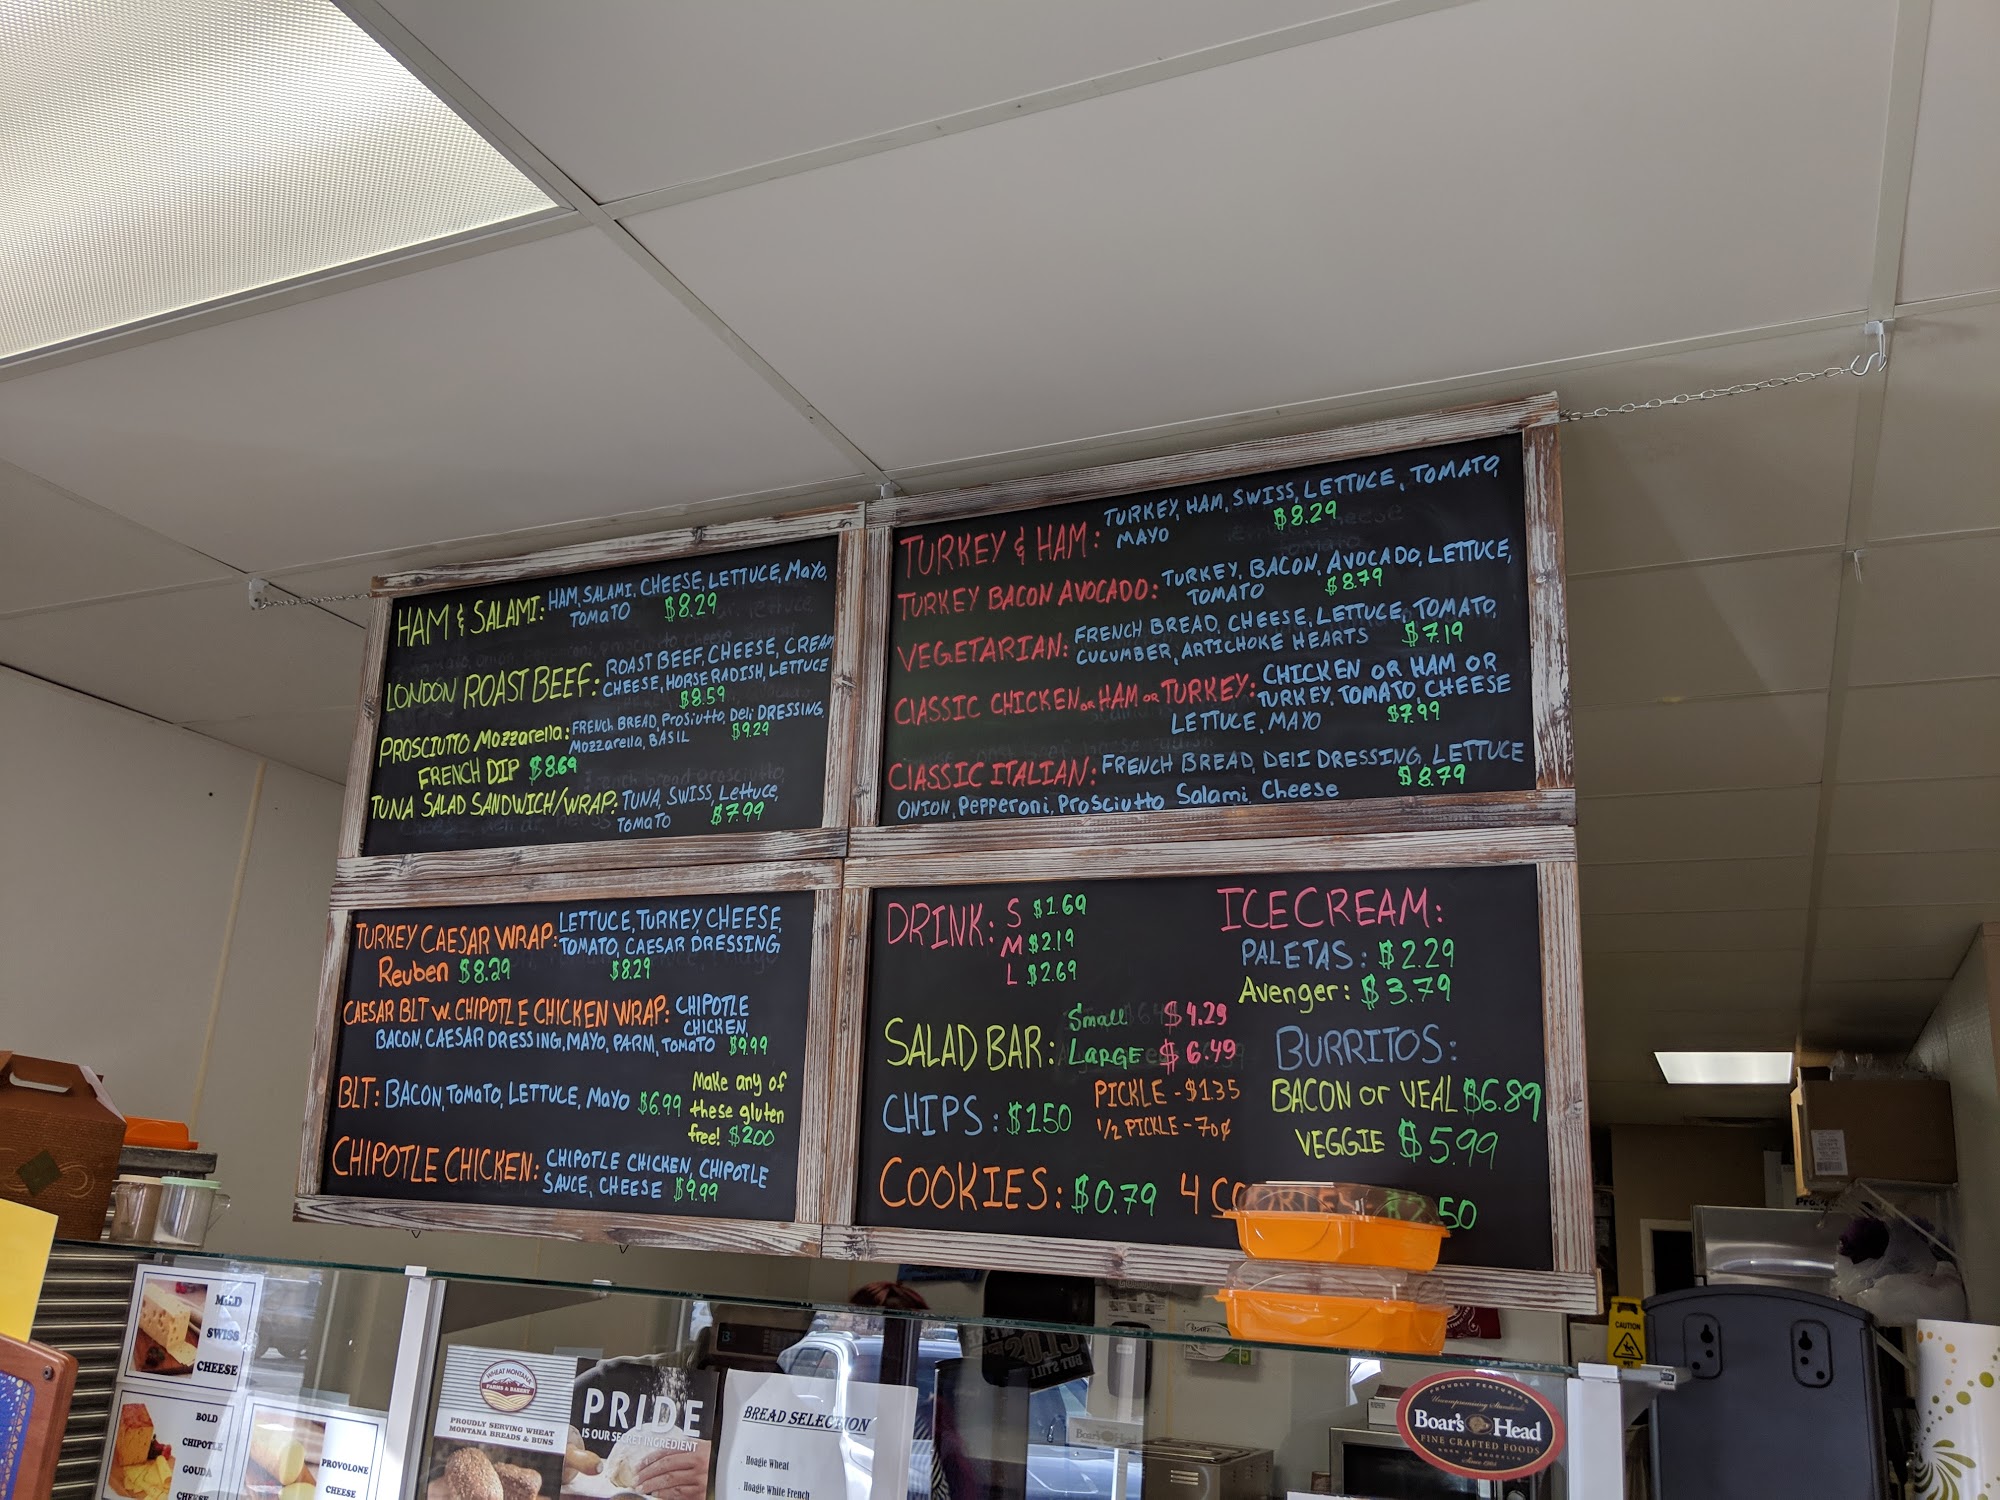 HAM & SALAMI: HAM, SALAMI, CHEESE, LETTUCE, MAYO,
TOMATO $8.29
LONDON ROAST BEEF: ROAST BEEF, CHEESE, CREAM
CHEESE, HORSERADISH, LETTUCE
$8.59
PROSCIUTTO Mozzarella: FRENCH BREAD, Prosciutto, Deli DRESSING,
Mozzarella, BASIL $9.29
FRENCH DIP $8.69
TUNA SALAD SANDWICH/WRAP: TUNA, SWISS, Lettuce,
TOMATO $7.99
TURKEY & HAM: TURKEY, HAM, SWISS, LETTUCE, TOMATO,
MAYO $8.29
TURKEY BACON AVOCADO: TURKEY, BACON, AVOCADO, LETTUCE,
TOMATO $8.79
VEGETARIAN: FRENCH BREAD, CHEESE, LETTUCE, TOMATO,
CUCUMBER, ARTICHOKE HEARTS $7.19
CLASSIC CHICKEN OR HAM OR TURKEY: CHICKEN OR HAM OR
TURKEY, TOMATO, CHEESE
LETTUCE, MAYO $7.99
CLASSIC ITALIAN: FRENCH BREAD, DELI DRESSING, LETTUCE
ONION, Pepperoni, Prosciutto Salami, Cheese $8.79
TURKEY CAESAR WRAP: LETTUCE, TURKEY, CHEESE,
TOMATO, CAESAR DRESSING
Reuben $8.29 $8.29
CAESAR BLT w. CHIPOTLE CHICKEN WRAP: CHIPOTLE
CHICKEN,
BACON, CAESAR DRESSING, MAYO, PARM, TOMATO $9.99
BLT: BACON, TOMATO, LETTUCE, MAYO $6.99
Make any of
these gluten
free! $2.00
CHIPOTLE CHICKEN: CHIPOTLE CHICKEN, CHIPOTLE
SAUCE, CHEESE $9.99
DRINK: S $1.69
M $2.19
L $2.69
ICE CREAM:
PALETAS: $2.29
Avenger: $3.79
SALAD BAR: Small $4.29
LARGE $6.49
BURRITOS:
BACON or VEAL $6.89
VEGGIE $5.99
CHIPS: $1.50
PICKLE - $1.35
1/2 PICKLE - 70¢
COOKIES: $0.79 4 COOKIES $2.50
MILD
SWISS
CHEESE
BOLD
CHIPOTLE
GOUDA
CHEESE
PROVOLONE
CHEESE
WHEAT MONTANA
FARMS & BAKERY
PROUDLY SERVING WHEAT
MONTANA BREADS & BUNS
PRIDE
IS OUR SECRET INGREDIENT
BREAD SELECTION
Hoagie Wheat
Hoagie White French
PROUDLY FEATURING
Boar's Head
FINE CRAFTED FOODS
BORN IN BROOKLYN
Since 1905
CAUTION